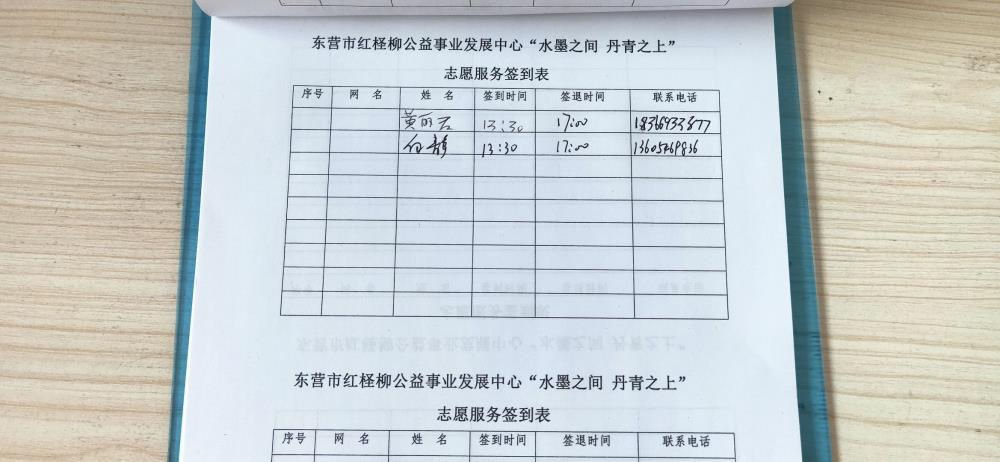 东营市红柽柳公益事业发展中心“水墨之间 丹青之上”
志愿服务签到表
序号 网 名 姓 名 签到时间 签退时间 联系电话
黄丽 13:30 17:00
白静 13:30 17:00
东营市红柽柳公益事业发展中心“水墨之间 丹青之上”
志愿服务签到表
序号 网 名 姓 名 签到时间 签退时间 联系电话